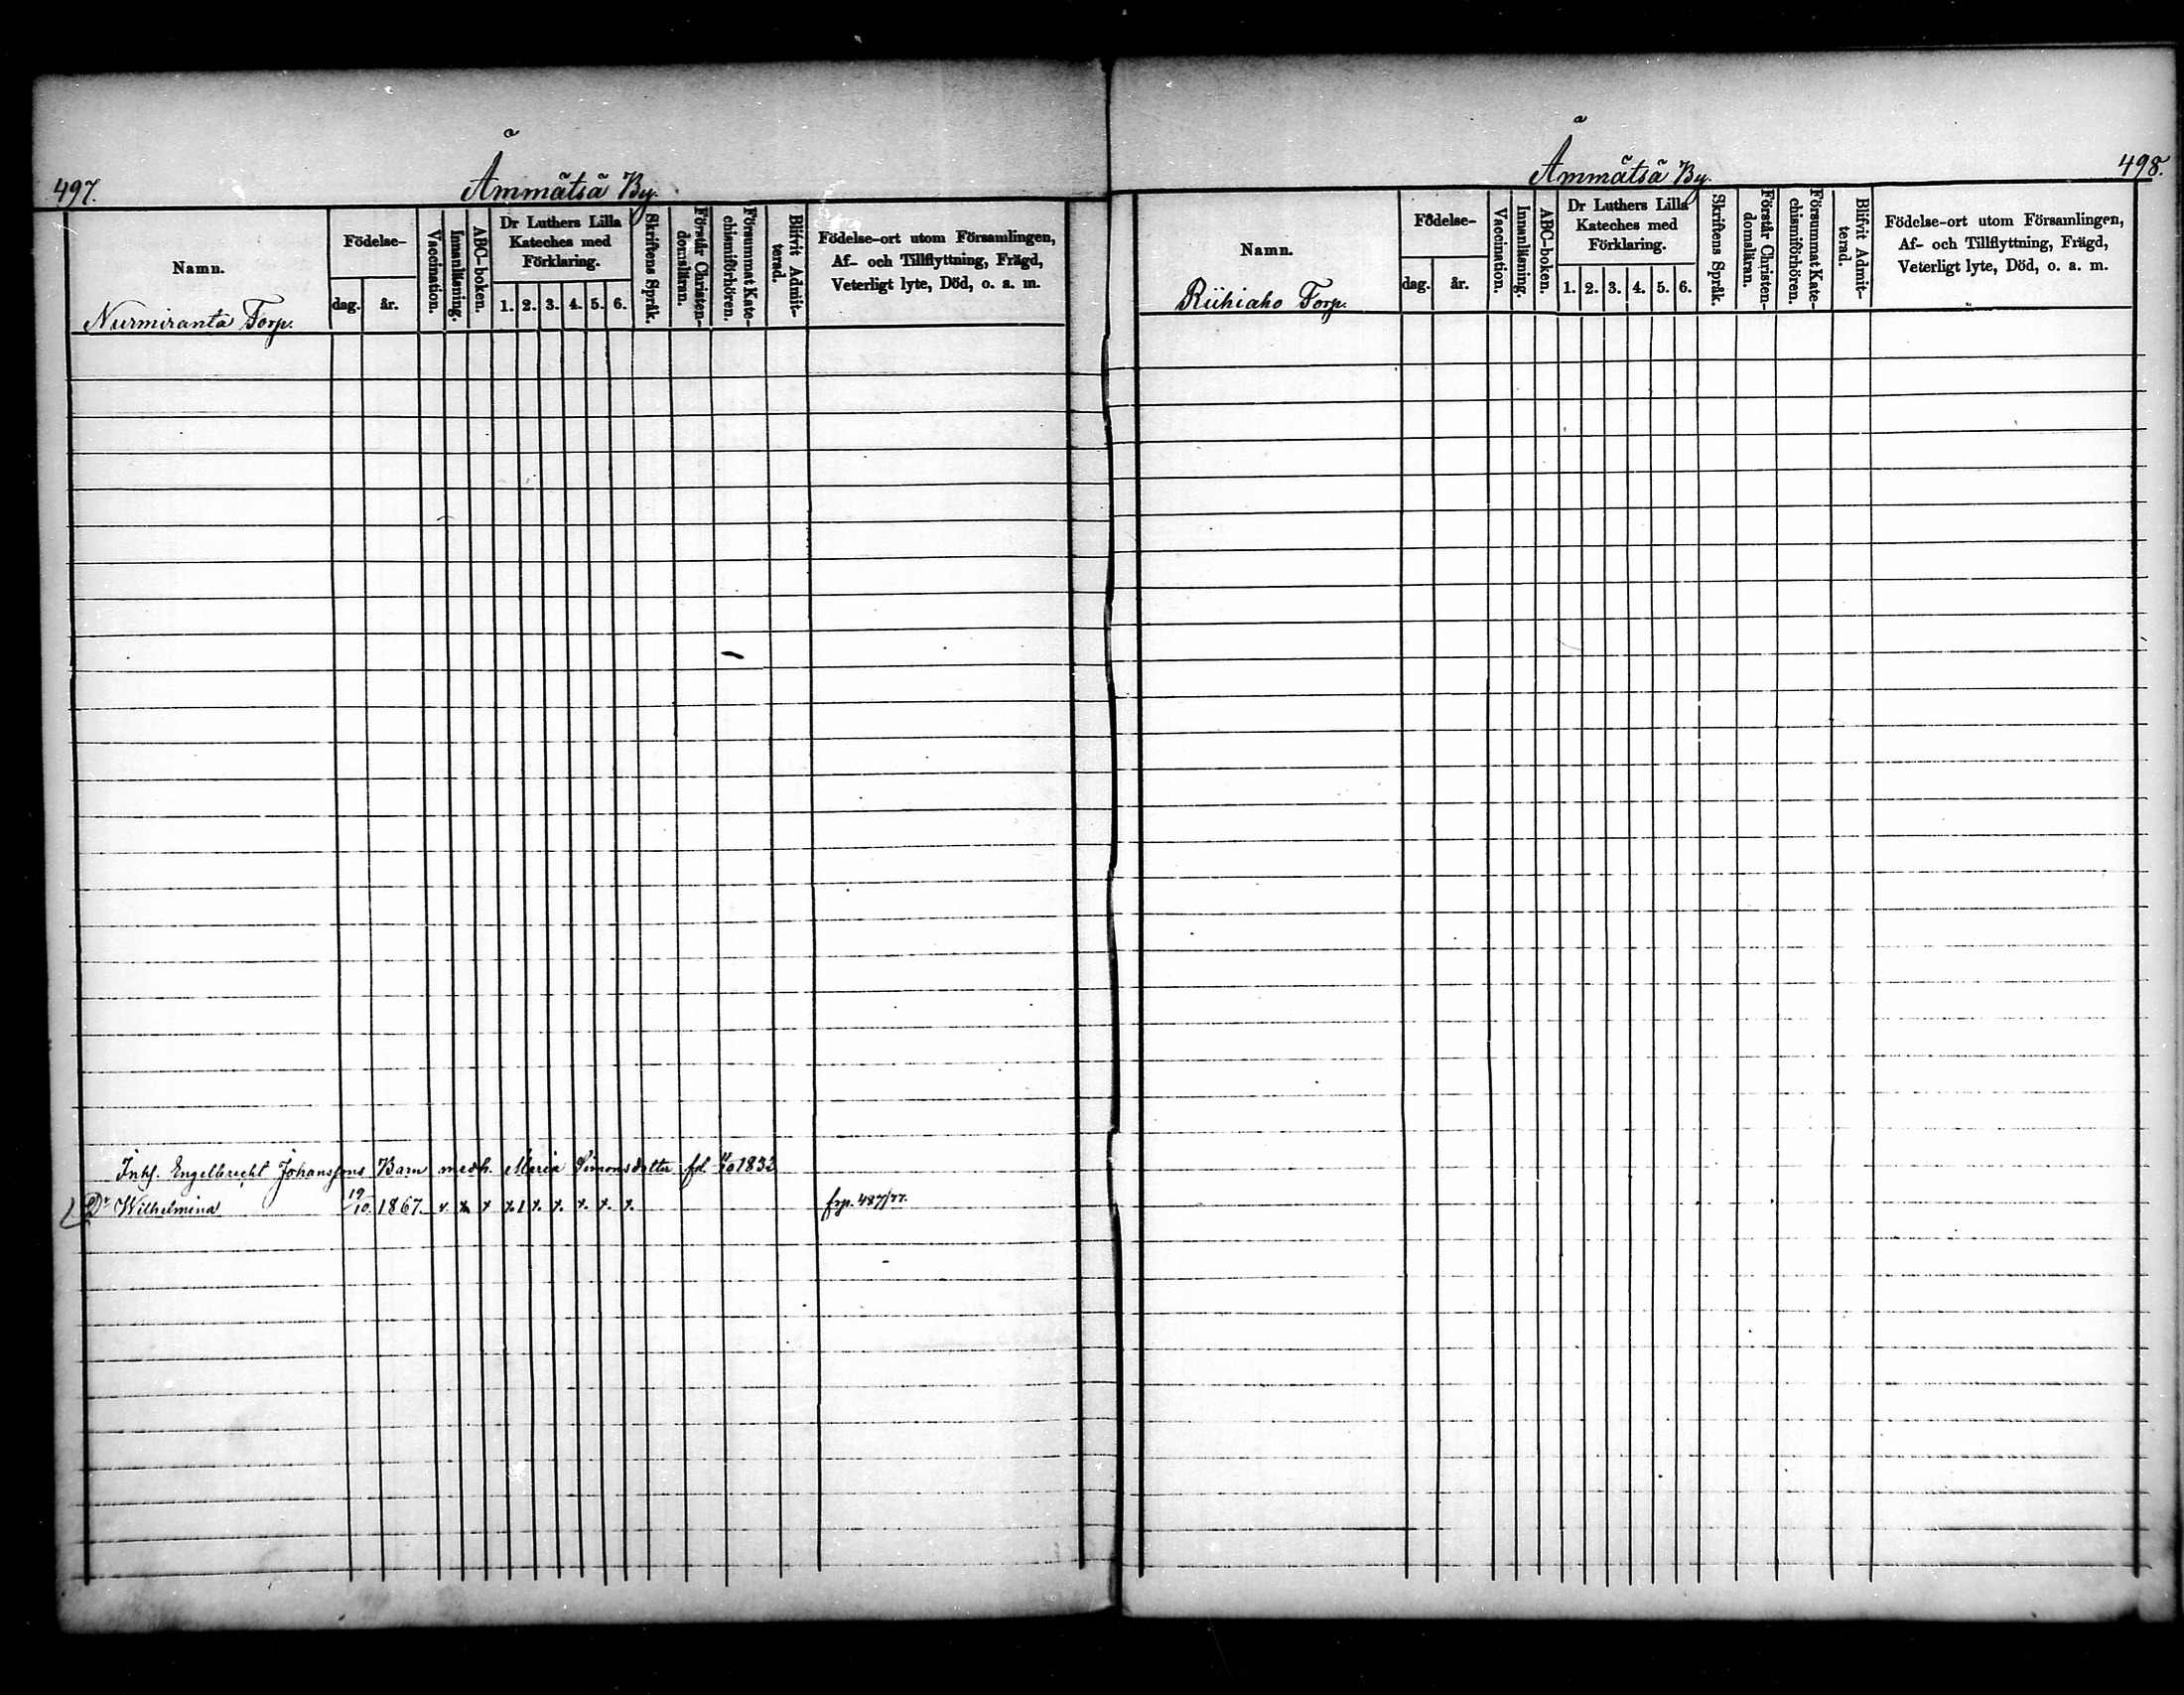 497.
Ämmätsä By.
Namn.
Födelse-
dag.
år.
Vaccination.
Innanläsning.
ABC-boken.
Dr Luthers Lilla
Kateches med
Förklaring.
1. 2. 3. 4. 5. 6.
Skriftens Språk.
Förstår Christen-
domsläran.
Försummat Kate-
chismiförhören.
Blifvit Admit-
terad.
Födelse-ort utom Församlingen,
Af- och Tillflyttning, Frägd,
Veterligt lyte, Död, o. a. m.
Nurmiranta Torp.
Inh. Engelbrecht Johanssons Barn med h. Maria Simonsdotter fd 1832
Dr Wilhelmina 19/10 1867. x x x x 1 x. x. x. x. x. frp. 487/77.
498.
Ämmätsä By.
Namn.
Födelse-
dag.
år.
Vaccination.
Innanläsning.
ABC-boken.
Dr Luthers Lilla
Kateches med
Förklaring.
1. 2. 3. 4. 5. 6.
Skriftens Språk.
Förstår Christen-
domsläran.
Försummat Kate-
chismiförhören.
Blifvit Admit-
terad.
Födelse-ort utom Församlingen,
Af- och Tillflyttning, Frägd,
Veterligt lyte, Död, o. a. m.
Riihiaho Torp.